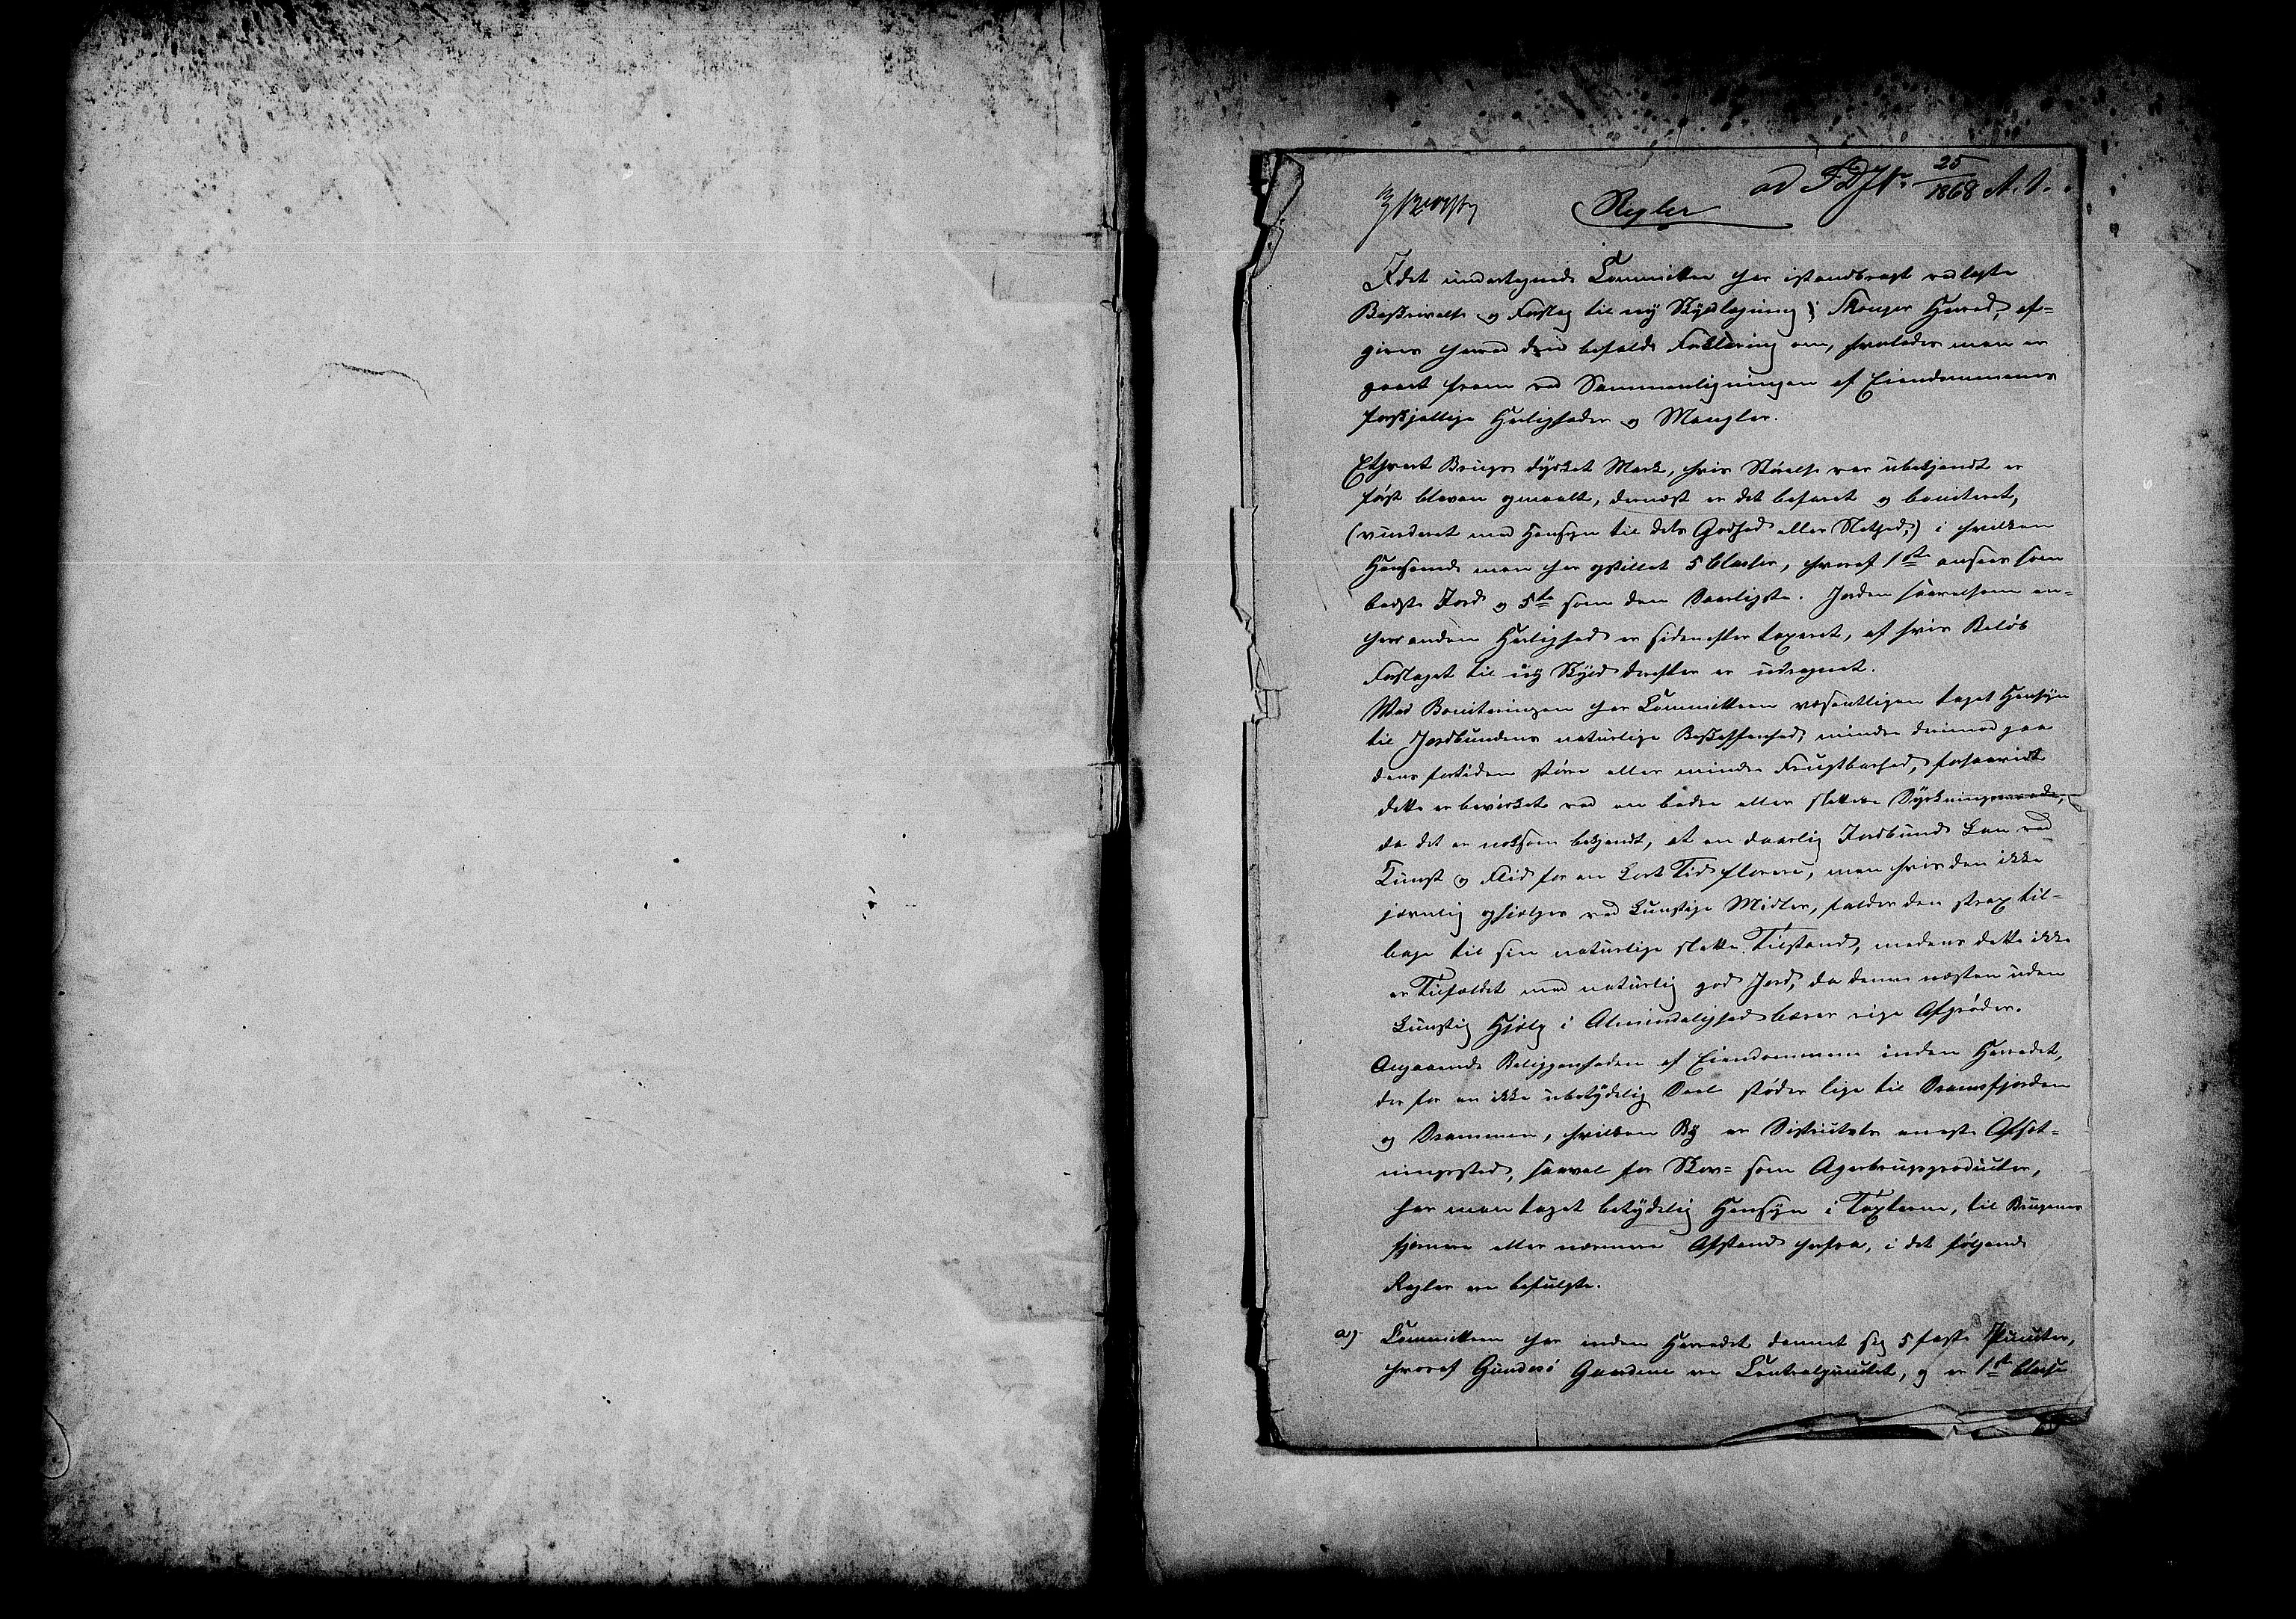 ad F.D.J.N. 25/1868 A. 1.
Regler
Idet undertegnede Committee har istandbragt vedlagte
Beskrivelse og Forslag til ny Skyldlægning i Skouger Herred, af-
gives herved den befalede Forklaring om, hvorledes man er
gaaet frem ved Sammenligningen af Eiendommenes
forskjellige Herligheder og Mangler.
Ethvert Brugs dyrket Mark, hvis Størrelse var ubekjendt er
først bleven opmaalt, dernæst er det befaret og boniteret,
(vurderet med Hensyn til dets Godhed eller Slethed,) i hvilken
Henseende man har opstillet 5 Classer, hvoraf 1ste ansees som
bedste Jord og 5te som den Daarligste. Jorden saavelsom en-
hver anden Herlighed er sidenefter taxeret, af hvis Beløb
Forslaget til ny Skyld derefter er udregnet.
Ved Boniteringen har Committeen væsentligen taget Hensyn
til Jordbundens naturlige Beskaffenhed, mindre derimod paa
dens fortiden større eller mindre Frugtbarhed, forsaavidt
dette er bevirket ved en bedre eller slettere Dyrkningsmaade,
da det er noksom bekjendt, at en daarlig Jordbund kan ved
Kunst og Flid for en kort Tid florere, men hvis den ikke
jævnlig ophjælpes ved kunstige Midler, falder den strax til-
bage til sin naturlige slette Tilstand, medens dette ikke
er Tilfældet med naturlig god Jord, da denne næsten uden
kunstig Hjælp i Almindelighed bærer rige Afgrøder.
Angaaende Beliggenheden af Eiendommene inden Herredet,
der for en ikke ubetydelig Deel støder lige til Dramsfjorden
og Drammen, hvilken By er Districtets eneste Afsæt-
ningssted, saavel for Skov- som Agerbrugsproducter,
har man taget betydelig Hensyn i Taxterne, til Brugenes
fjernere eller nærmere Afstand herfra, i det følgende
Regler ere befulgte.
a). Committeen har inden Herredet dannet sig 5 faste Puncter,
hvoraf Gundesø Gaardene ere Centralpunctet, og er 1ste Classe